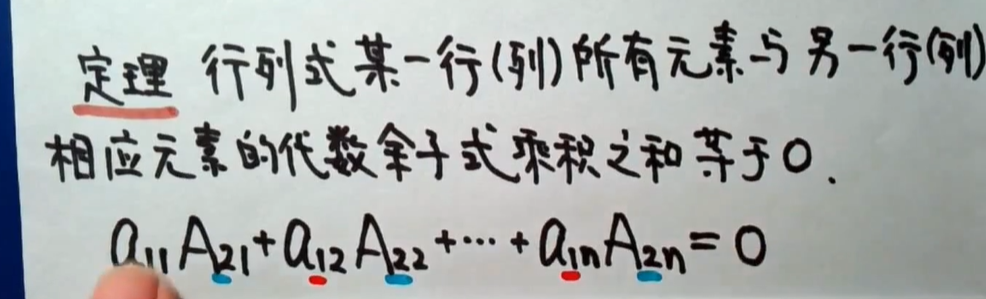 定理 行列式某一行(列)所有元素与另一行(列)
相应元素的代数余子式乘积之和等于0.
a₁₁A₂₁+a₁₂A₂₂+…+a₁ₙA₂ₙ=0